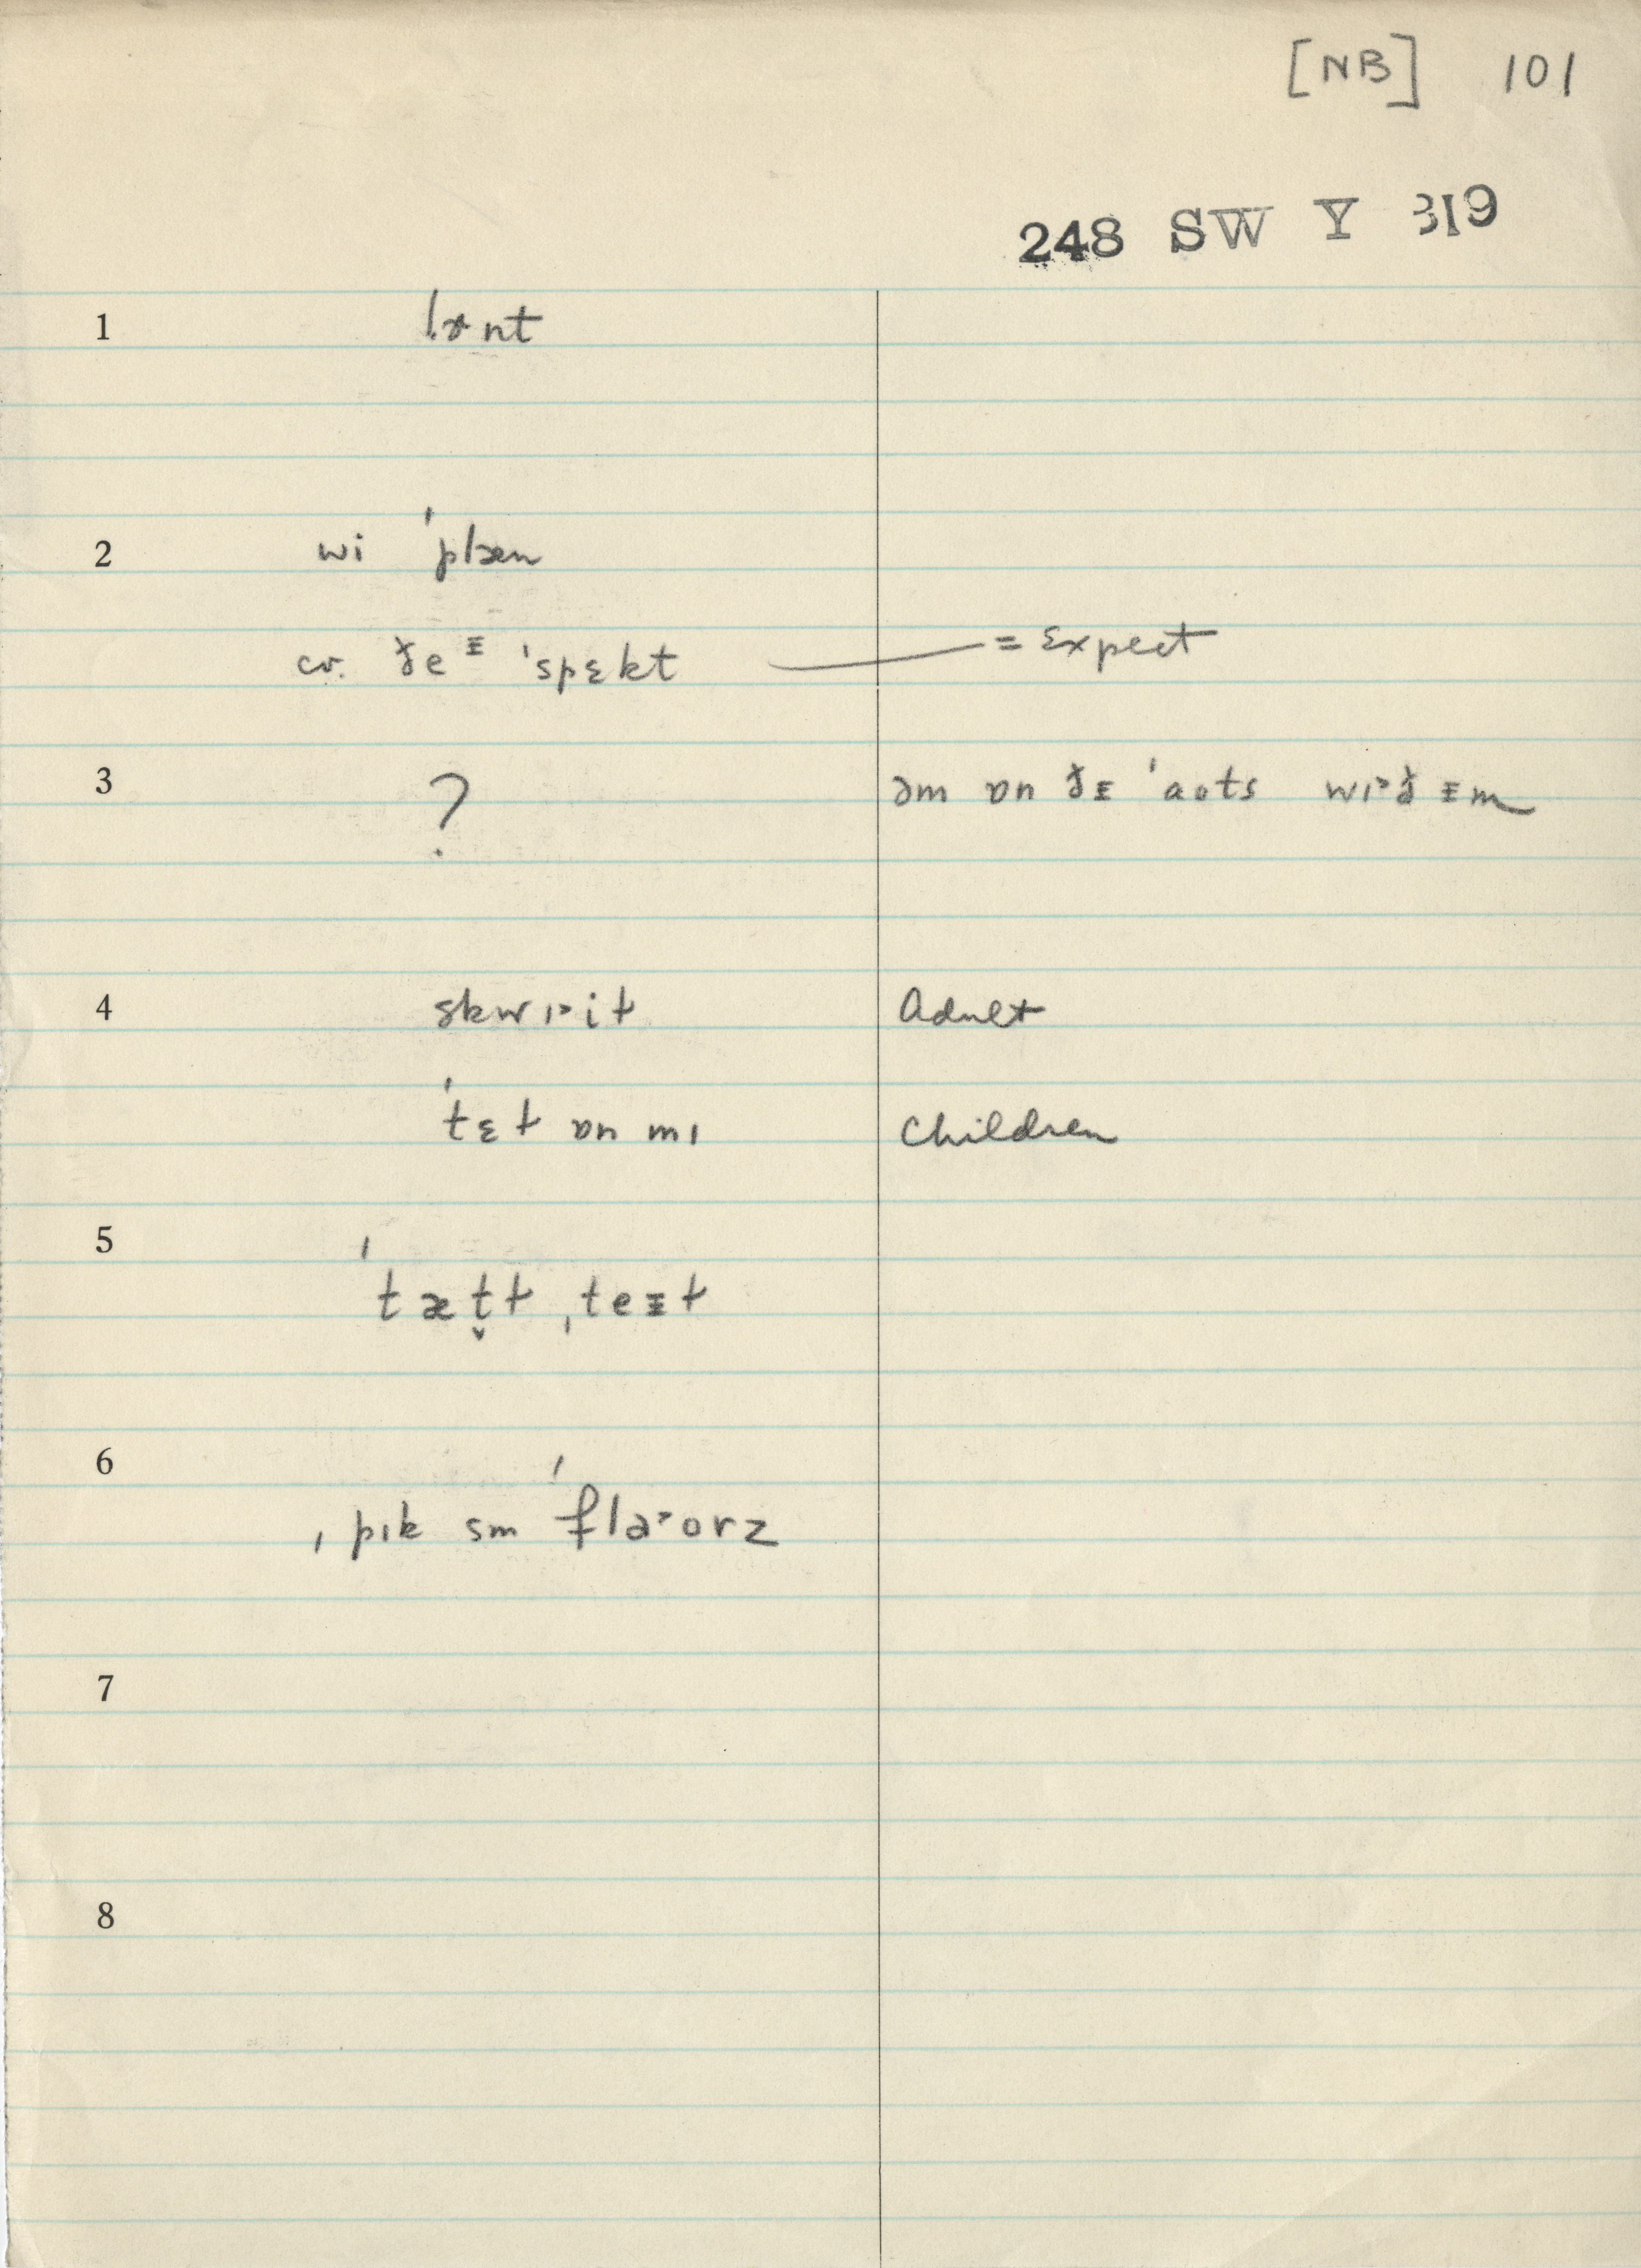 [NB] 101
248 SW Y 319
1 lɚnt
2 wi ˈplæn
cv. ðe ᵻ ˈspɛkt = Expect
3 ? əm ɒn ðᵻ ˈaʊts wɪ˃ðᵻm
4 skwɪ˃iɫ Adult
ˈtɛɫ ɒn mɪ Children
5 ˈtæt̬ɫ ˌteᵻɫ
6 ˌpɪk sm ˈflɑ˃ʊrz
7
8